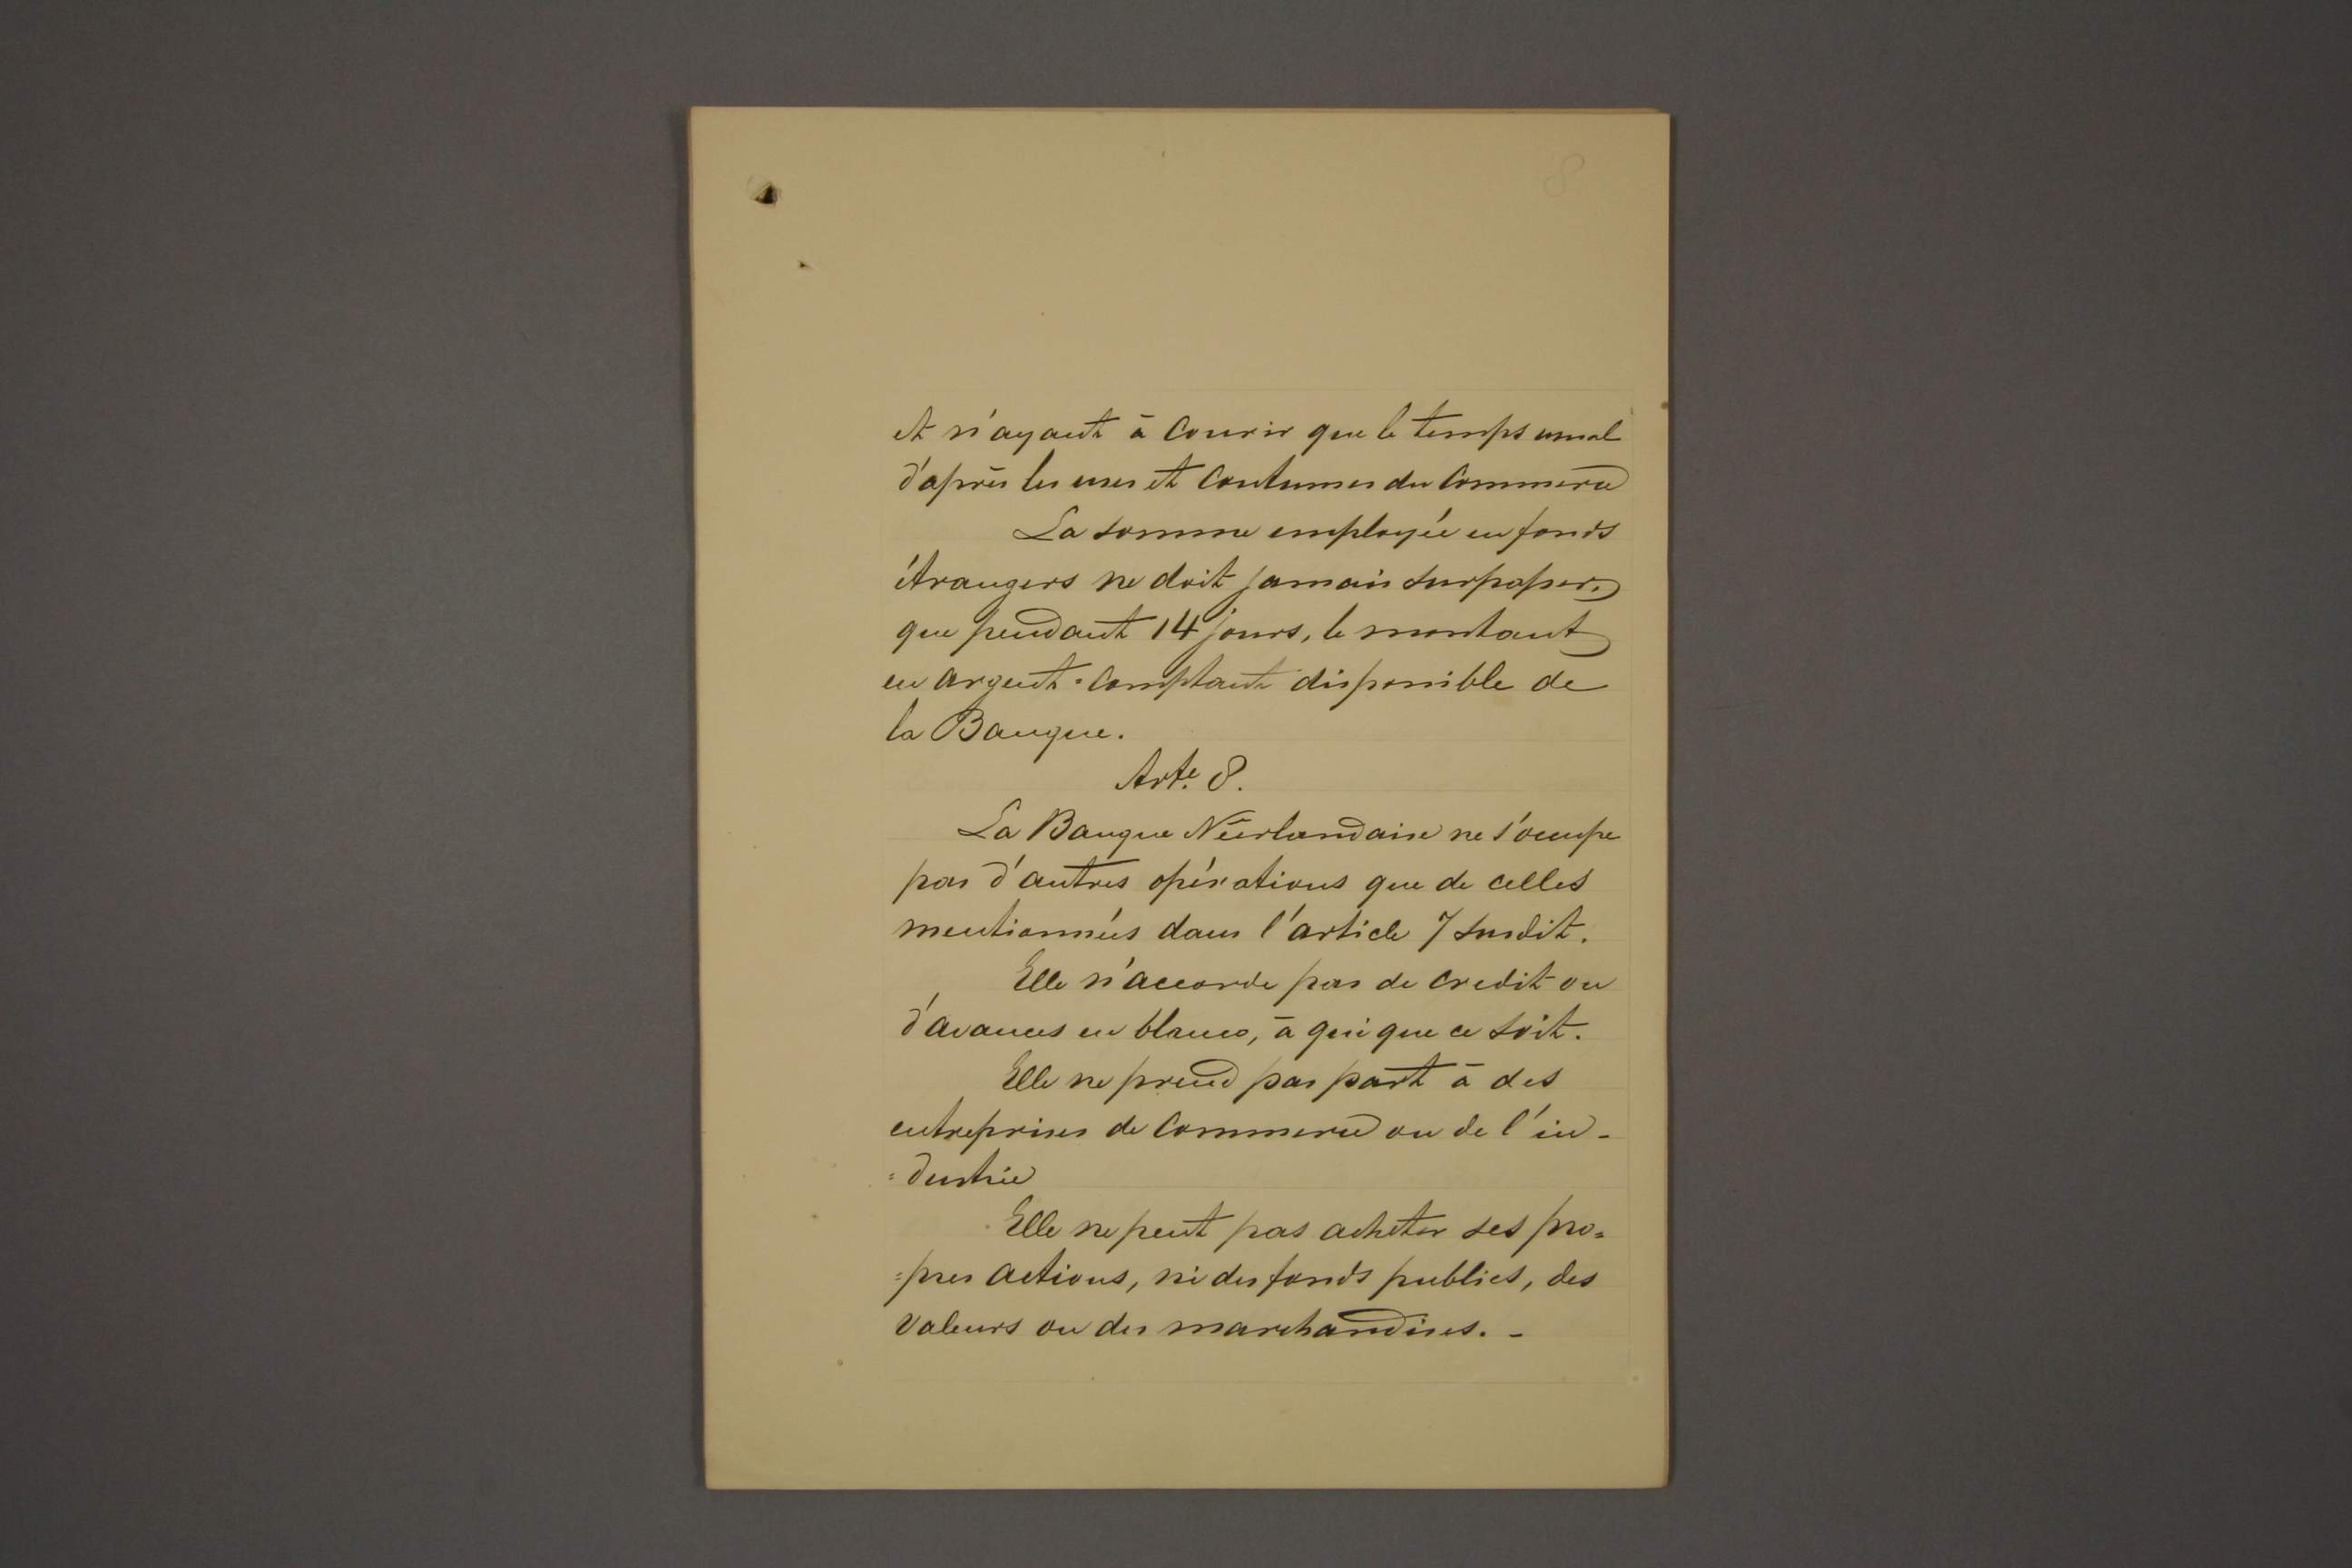 8
et n'ayant à courir que le temps usuel
d'après les uses et coutumes du Commerce
La somme employée en fonds
étrangers ne doit jamais surpasser,
que pendant 14 jours, le montant
en argent-comptant disponible de
la Banque.
Arte. 8.
La Banque Néerlandaise ne s'occupe
pas d'autres opérations que de celles
mentionnées dans l'article 7 susdit.
Elle n'accorde pas de credit ou
d'avances en blanco, à qui que ce soit.
Elle ne prend pas part à des
entreprises de Commerce ou de l'in-
=dustrie
Elle ne peut pas acheter ses pro=
=pres actions, ni des fonds publics, des
valeurs ou des marchandises. -